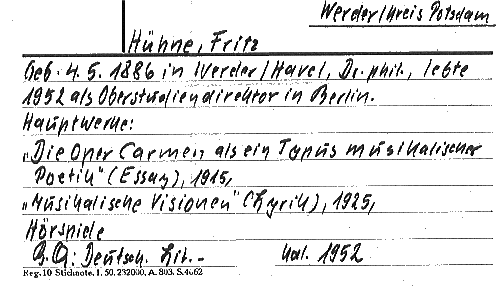 Werder/Kreis Potsdam
Hühne, Fritz
Geb. 4. 5. 1886 in Werder/Havel, Dr. phil., lebte
1952 als Oberstudiendirektor in Berlin.
Hauptwerke:
„Die Oper Carmen als ein Typus musikalischer
Poetik" (Essay), 1915,
„Musikalische Visionen" (Lyrik), 1925,
Hörspiele
B. Qu: Deutsch. Lit.-Kal. 1952
Reg. 10 Stichnote. I. 50. 232000. A. 803. S. 4662